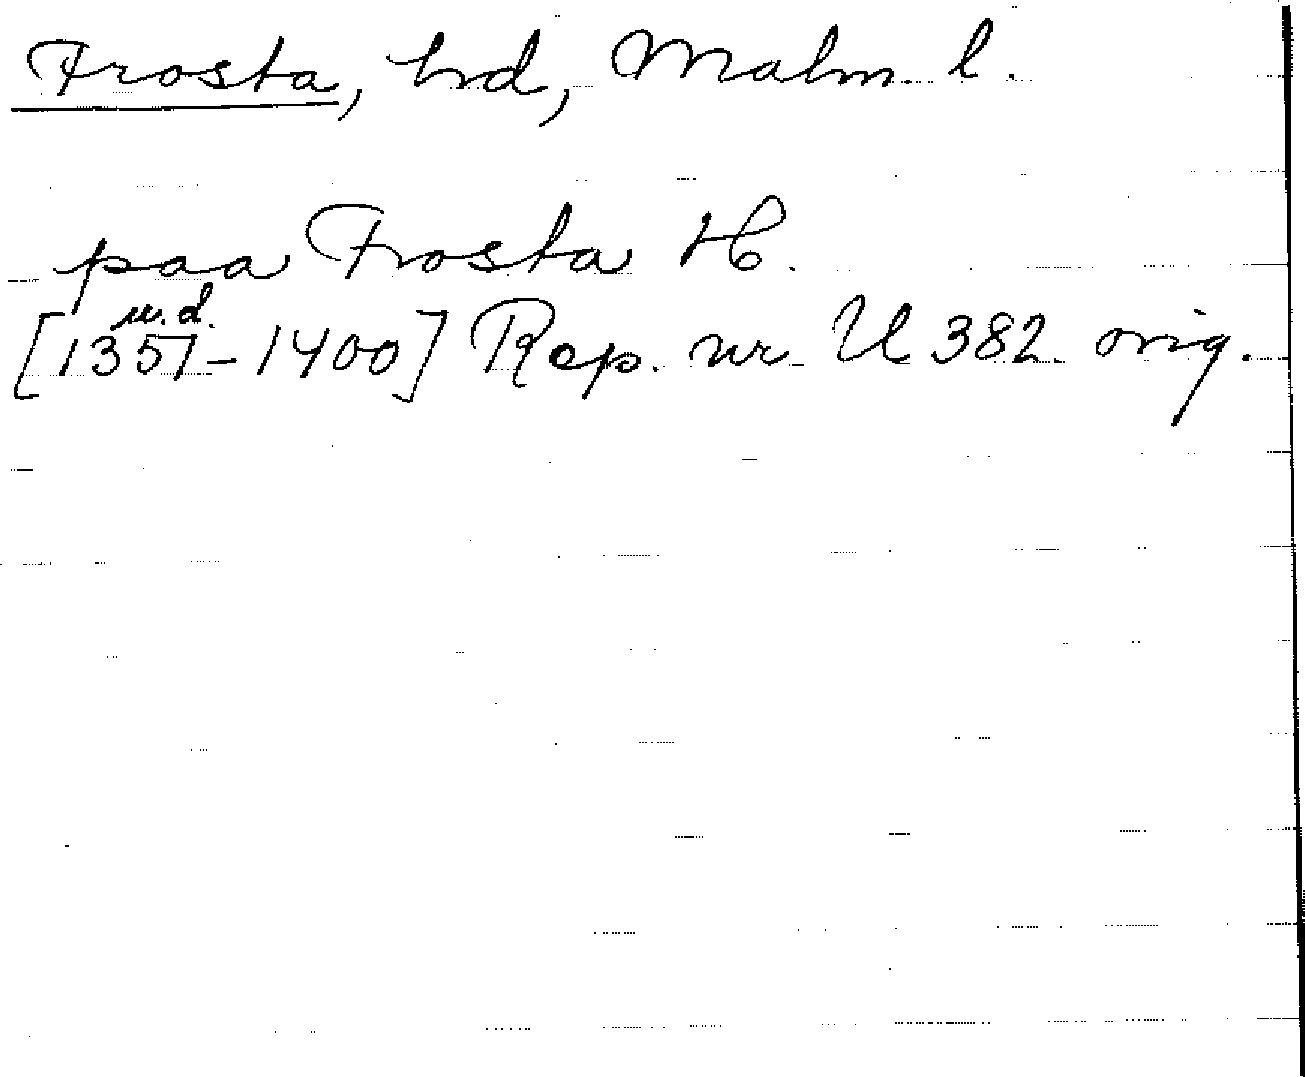 Frosta, hrd, Malm. l.
paa Frosta H.
u.d.
[1351-1400] Rep. nr. U 382. orig.